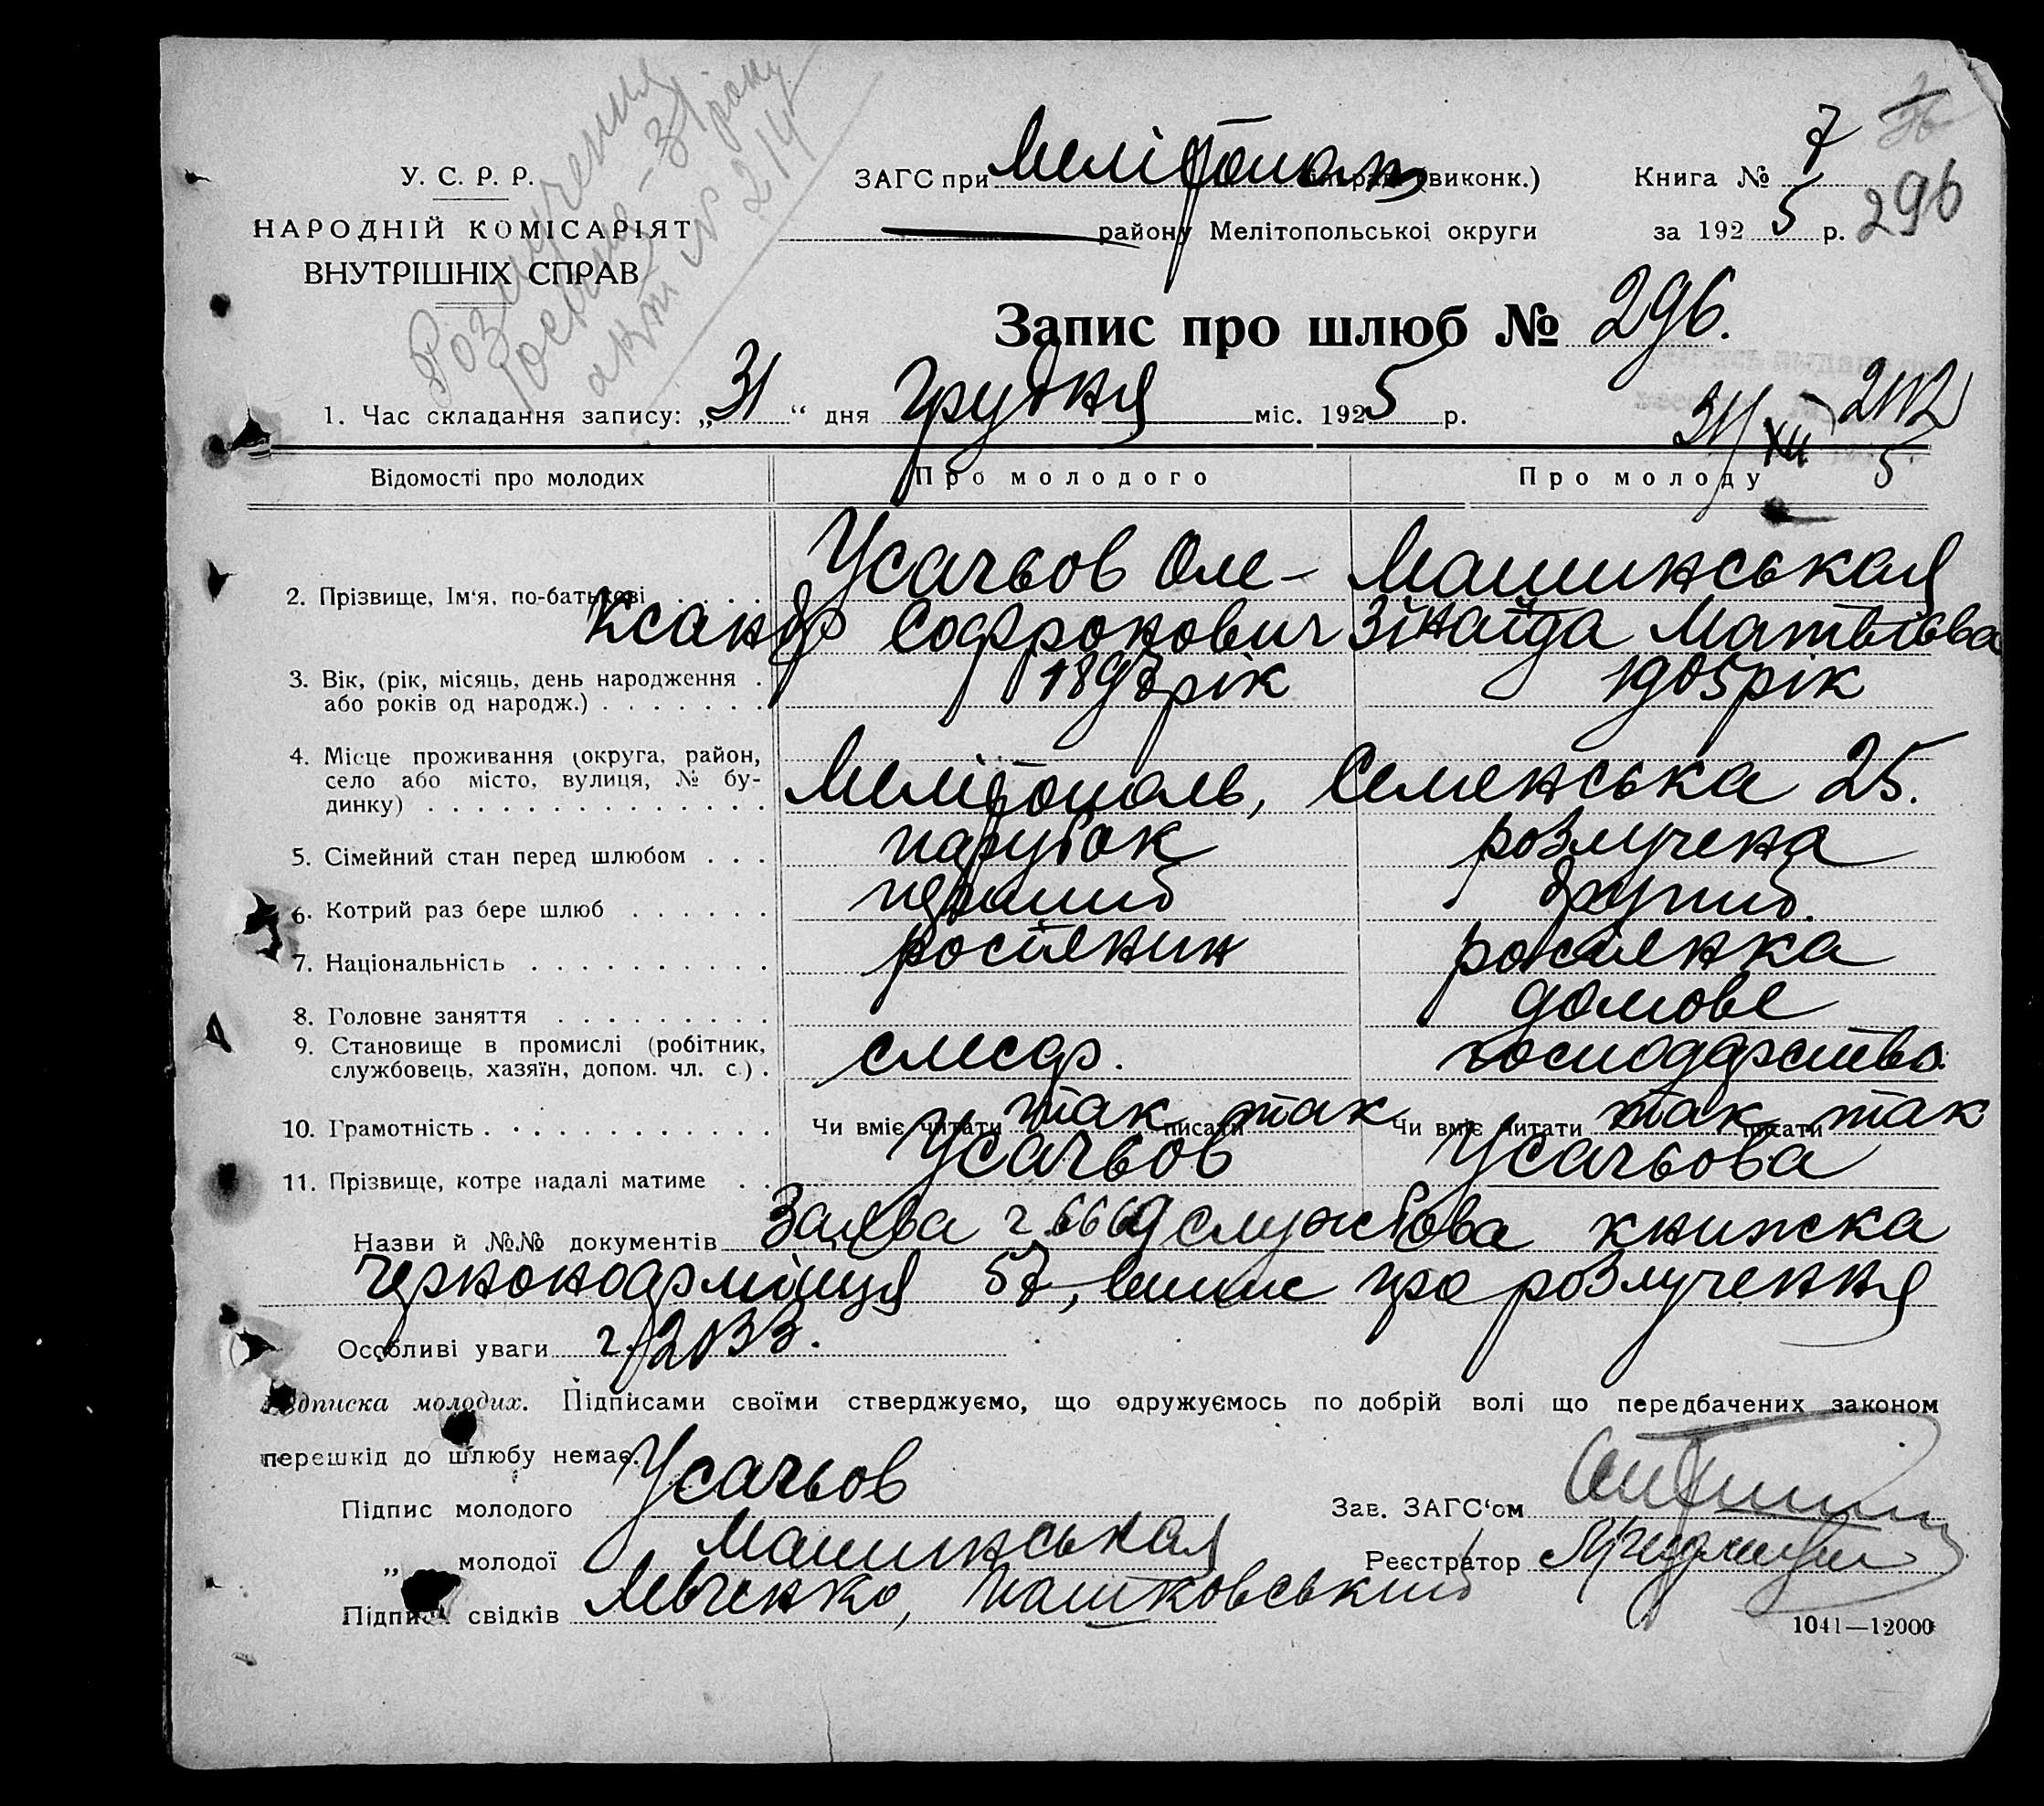 Розлучення
31 року
акт № 214
У. С. Р. Р.
НАРОДНІЙ КОМІСАРІЯТ
ВНУТРІШНІХ СПРАВ
ЗАГС при Меліто виконк.)
району Мелітопольської округи
Книга № 7
за 192 5 р. 296
Запис про шлюб № 296.
1. Час складання запису: „ 31 “ дня грудня міс. 192 5 р.
31/XII 5
Відомості про молодих
Про молодого
Про молоду
2. Прізвище, Ім'я, по-батькові . . . . Усачьов Оле- Машинськая
ксандр Софронович Зінаїда Матвієва
3. Вік, (рік, місяць, день народження . 1897 рік 1905 рік
або років од народж.) . . . . . . .
4. Місце проживання (округа, район,
село або місто, вулиця, № бу- Мелітополь, Семенська 25.
динку) . . . . . . . . . . . . . .
5. Сімейний стан перед шлюбом . . . парубок розлучена
6. Котрий раз бере шлюб . . . . . . перший другий.
7. Національність . . . . . . . . . . росіянин росіянка
8. Головне заняття . . . . . . . . . домове
9. Становище в промислі (робітник, слесар. господарство.
службовець, хазяїн, допом. чл. с.) .
10. Грамотність . . . . . . . . . . . . Чи вміє читати так писати так Чи вміє читати так писати так
11. Прізвище, котре надалі матиме . . Усачьов Усачьова
Назви й №№ документів Заява г 6669 службова книжка
червоноармійця 57, випис про розлучення
Особливі уваги г. 2033.
Підписка молодих. Підписами своїми стверджуємо, що одружуємось по добрій волі що передбачених законом
перешкід до шлюбу немає.
Підпис молодого Усачьов
Зав. ЗАГС'ом
„ молодої Машинськая
Реєстратор
Підписи свідків Левченко, Пашковський
1041—12000